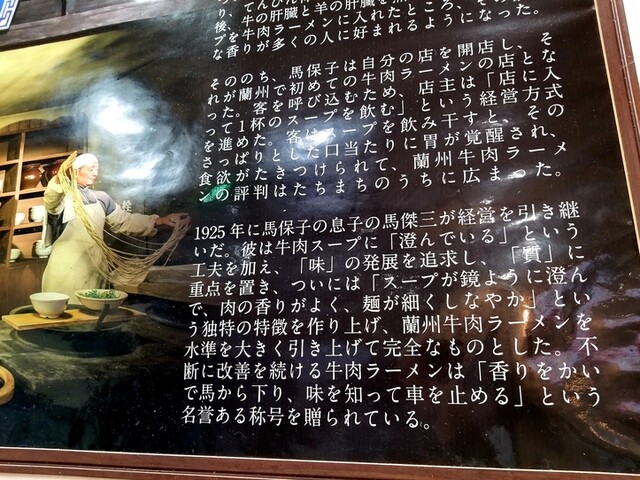 後、牛の肝臓と羊の肝臓を
プを牛肉ラーメンに入れたところ、その
な香りが多くの人に好まれるようになった。
そののち、馬保子は自分の店を開店し、そ
れが蘭州で初めての牛肉ラーメンの店とな
った。客を呼び込むため、店主は「店に入
って1杯のスープを飲む」という経営方式
を進めた。客はスープを飲み干すと、その
さっぱりとした口当たりに胃が覚醒され、
食欲がたきつけられて、蘭州牛肉ラーメ
ンの評判はたちまちのうちに広まった。
1925年に馬保子の息子の馬傑三が経営を引き継
いだ。彼は牛肉スープに「澄んでいる」という
工夫を加え、「味」の発展を追求し、「質」に
重点を置き、ついには「スープが鏡ように澄ん
で、肉の香りがよく、麺が細くしなやか」とい
う独特の特徴を作り上げ、蘭州牛肉ラーメンを
水準を大きく引き上げて完全なものとした。不
断に改善を続ける牛肉ラーメンは「香りをかい
で馬から下り、味を知って車を止める」という
名誉ある称号を贈られている。